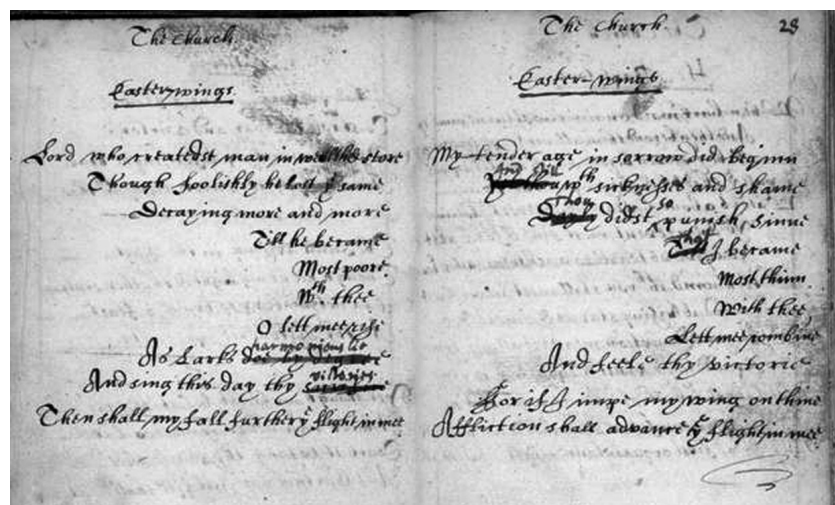 The Church.
Easter-wings.
Lord who createdst man in wealth & store
Though foolishly he lost yͤ same
Decaying more and more
Till he became
Most poore.
Wᵗʰ thee
O lett mee rise
harmoniouslie
As Larks doe by degree
victories
And sing this day thy sacrifice
Then shall my fall further yͤ flight in mee.
The Church. 28
Easter-wings
My tender age in sorrow did beginn
And still
wᵗʰ sicknesses and shame
Thou so
Dayly didst punish sinne
That
Till I became
Most thinn.
With thee
Lett mee combine
And feele thy victorie
For if I impe my wing on thine
Affliction shall advance yͤ flight in mee.